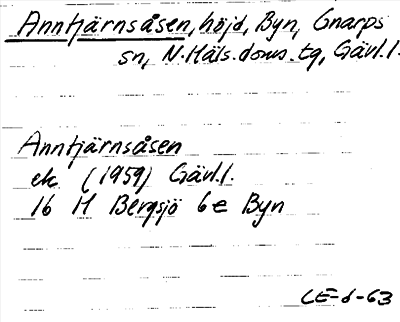 Anntjärnsåsen, höjd, Byn, Gnarps
sn, N. Häls. doms. tg, Gävl. l.
Anntjärnsåsen
ek (1959) Gävl. l.
16 H Bergsjö 6e Byn
LE-d-63